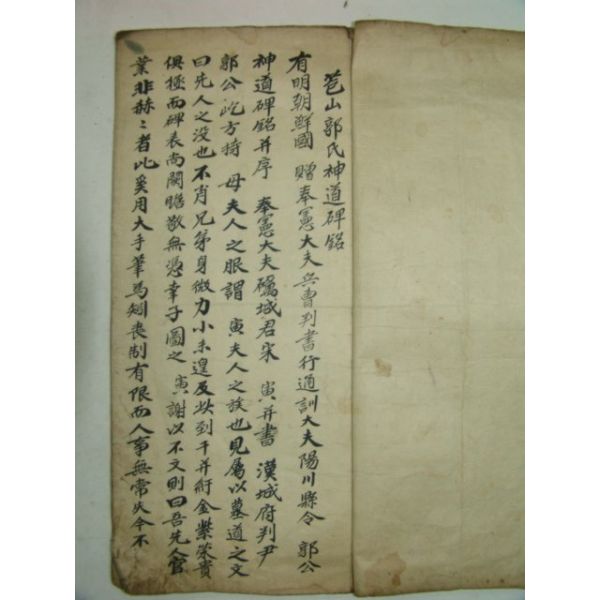 苞山郭氏神道碑銘
有明朝鮮國 贈奉憲大夫兵曹判書行通訓大夫陽川縣令 郭公
神道碑銘并序 奉憲大夫礪城君宋 寅并書 漢城府判尹
郭公屹方持 母夫人之服謂 寅夫人之族也見屬以墓道之文
曰先人之没也不肖兄弟身微力小未遑及此到于并紆金紫榮貴
俱極而碑表尚闕瞻敬無憑幸子圖之 寅謝以不文則曰吾先人官
業非赫〻者比奚用大手筆爲刻喪制有限而人事無常失今不